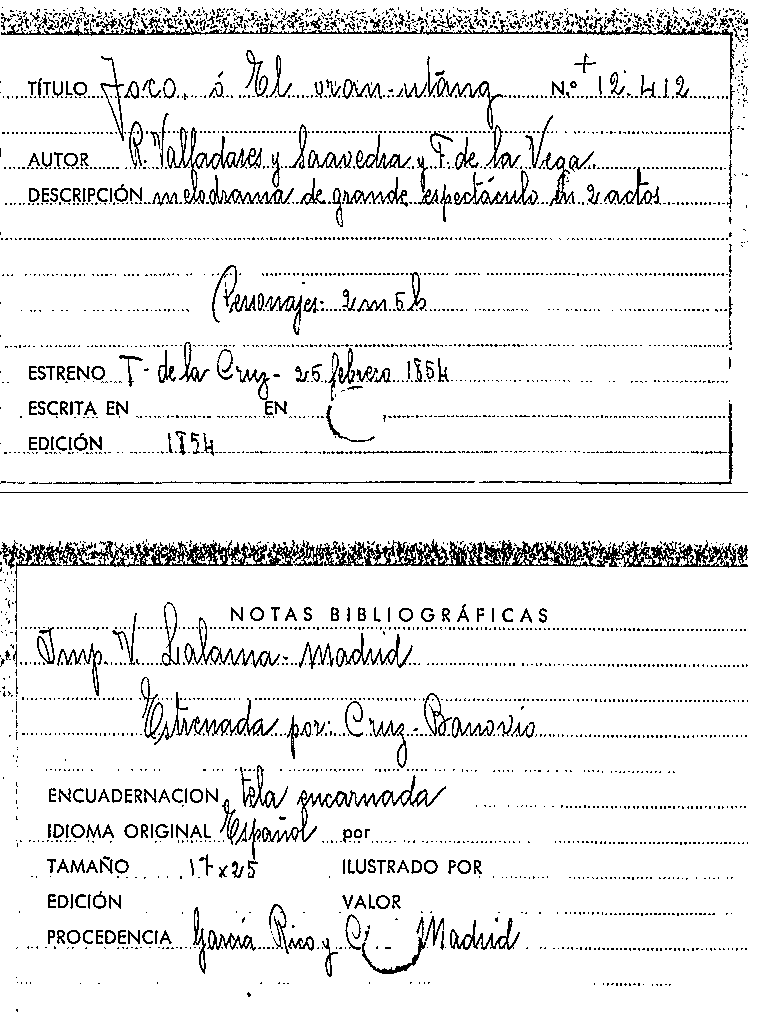 TÍTULO Joco, ó El oran-utáng N.º + 12.412
AUTOR R. Valladares y Saavedra y F. de la Vega.
DESCRIPCIÓN melodrama de grande espectáculo en 2 actos
Personajes: 2 m 5 h
ESTRENO T. de la Cruz - 25 febrero 1854
ESCRITA EN EN
EDICIÓN 1854
NOTAS BIBLIOGRÁFICAS
Imp. V. Lalama - Madrid
Estrenada por: Cruz - Banovio
ENCUADERNACION tela encarnada
IDIOMA ORIGINAL Español por
TAMAÑO 17 x 25 ILUSTRADO POR
EDICIÓN VALOR
PROCEDENCIA García Rico y C. Madrid